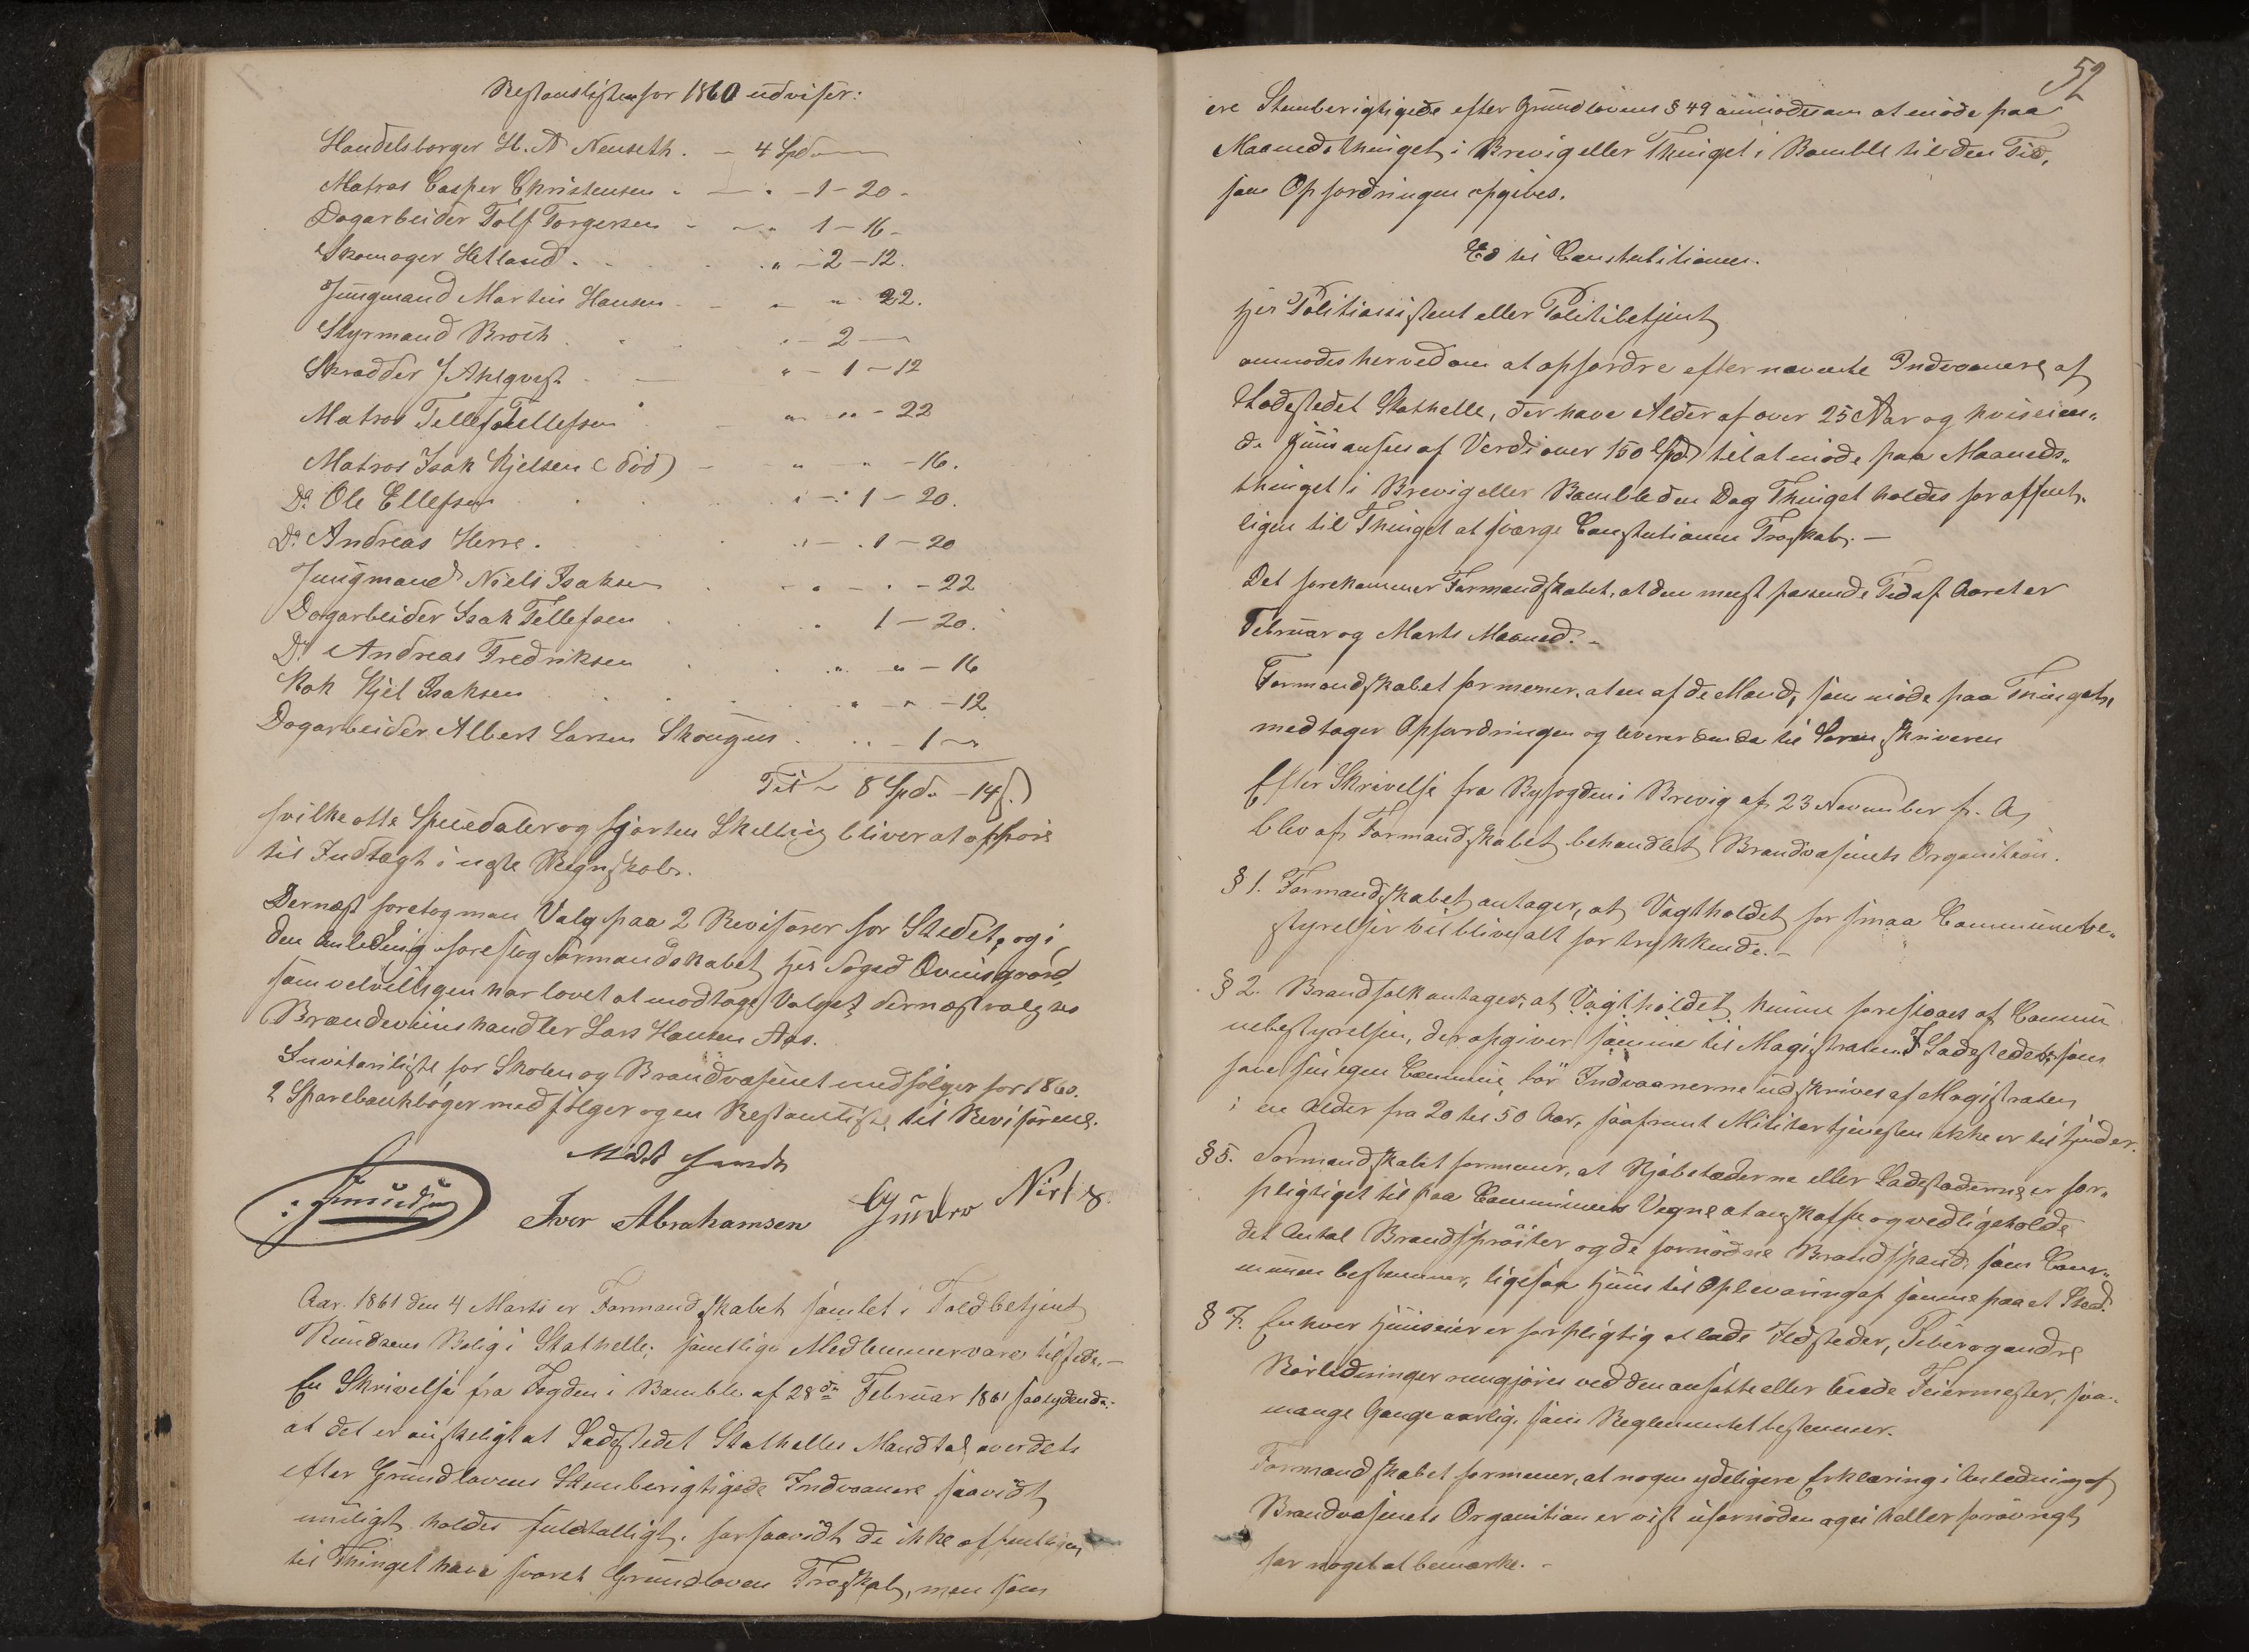 Restanslisten for 1860 udviser:
Handelsborger H. A Neuseth. – 4 Spd. –
Matros Casper Christensen - – - 1 - 20 -
Dagarbeider Tolf Torgersen - - 1 - 16 -
Skomager Hetland. - 2 - 12.
Jungmand Martin Hansen - - - 22.
Styrmand Broch - 2 -
Skrædder J Ahlqvist - - 1 - 12
Matros Tellef Tellefsen - - 22
Matros Isak Kjelsen (död) - " - " - 16.
Do. Ole Ellefsen - 1 - 20.
Do. Andreas Herre. - 1 - 20
Jungmand Niels Isaksen - - - 22
Dagarbeider Isak Tellefsen " 1 - 20.
Do. Andreas Fredriksen " " - 16
Kok Kjel Isaksen " - " - 12
Dagarbeider Albert Larsen Skougen - 1 - "
Til ~ 8 Spd. - 14 s.)
hvilke otte Speciedaler og fjorten Skilling bliver at opföre
til Indtægt i næste Regnskab.
Dernæst foretog man Valg paa 2 Revisorer for Stedet, og i
den Anledning foreslog Formandskabet Hr. Foged
som velvilligen har lovet at modtage Valget, dernæst valgtes
Brændeviinshandler Lars Hansen Aas.
Inventarliste for Skolen og Brandvæsenet medfölger for 1860.
2 Sparebankböger medfölger og en Restantliste til Revisörene.
Mödet
Iver Abrahamsen Gundro Nirls.
Aar 1861 den 4 Marts er Formandskabet samlet i Toldbetjent
Knudsens Bolig i Stathelle; samtlige Medlemmer vare tilstede. –
En Skrivelse fra Fogden i Bamble af 28de Februar 1861 saalydende:
at det er önskeligt at Ladestedet Stathelles Mandtal over dets
efter Grundlovens Stemberigtigede Indvaanere saavidt
muligt holdes fuldtalligt, forsaavidt de ikke offentligen
til Thinget have svoret Grundloven Troskab, men som
52
ere Stemberigtigede efter Grundlovens § 49 anmodes om at möde paa
Maanedsthinget i Brevig eller Thinget i Bamble til den Tid,
som Opfordringen opgives.
Ed til Constutitionen.
Hr. Politiassistent eller Politibetjent
anmodes herved om at opfordre efternævnte Indvaanere af
Ladestedet Stathelle, der have Alder af over 25 Aar og hvis eien-
de Huus ansees af Værdi over 150 Spd til at möde paa Maaneds-
thinget i Brevig eller Bamble den Dag Thinget holdes for offent-
ligen til Thinget at sværge Constutionen Troskab. –
Det forekommer Formandskabet, at den meest passende Tid af Aaret er
Februar og Marts Maaned. –
Formandskabet formener, at en af de Mænd, som möde paa Thinget,
medtager Opfordringen og leverer denne til Sorenskriveren
Efter Skrivelse fra Byfogden i Brevig af 23 November f. A,
blev af Formandskabet behandlet Brandvæsenets Organition.
§ 1. Formandskabet antager, at Vagtholdet for smaa Communebe-
styrelser vil blive alt for trykkende. –
§ 2. Brandfolk antages, at Vagtholdet kunne foreslaaes af Commu
nebestyrelsen, der opgiver samme til Magistraten. I Ladestedet, som
have sin egen Commune, bör Indvaanerne udskrives af Magistraten
i en Alder fra 20 til 50 Aar, saafremt Militærtjenesten ikke er til hinder.
§ 5. Formandskabet formener, at Kjöbstæderne eller Ladestæderne er for-
pligtiget til paa Communens Vegne at anskaffe og vedligeholde
det Antal Brandspröiter og de fornödne Brandspand, som Com-
munen bestemmer, ligesaa Huus til Opbevaring af samme paa et Sted.
§ 7. Enhver Huuseier er forpligtig at lade Ildsteder, Piber og andre
Rörledninger rengjöres ved den ansatte eller leiede Feiermester, saa
mange Gange aarlig, som Reglementet bestemmer.
Formandskabet formener, at nogen ydeligere Erklæring i Anledning af
Brandvæsenets Organition er vist ufornöden og ei heller forövrigt
har noget at bemærke. –